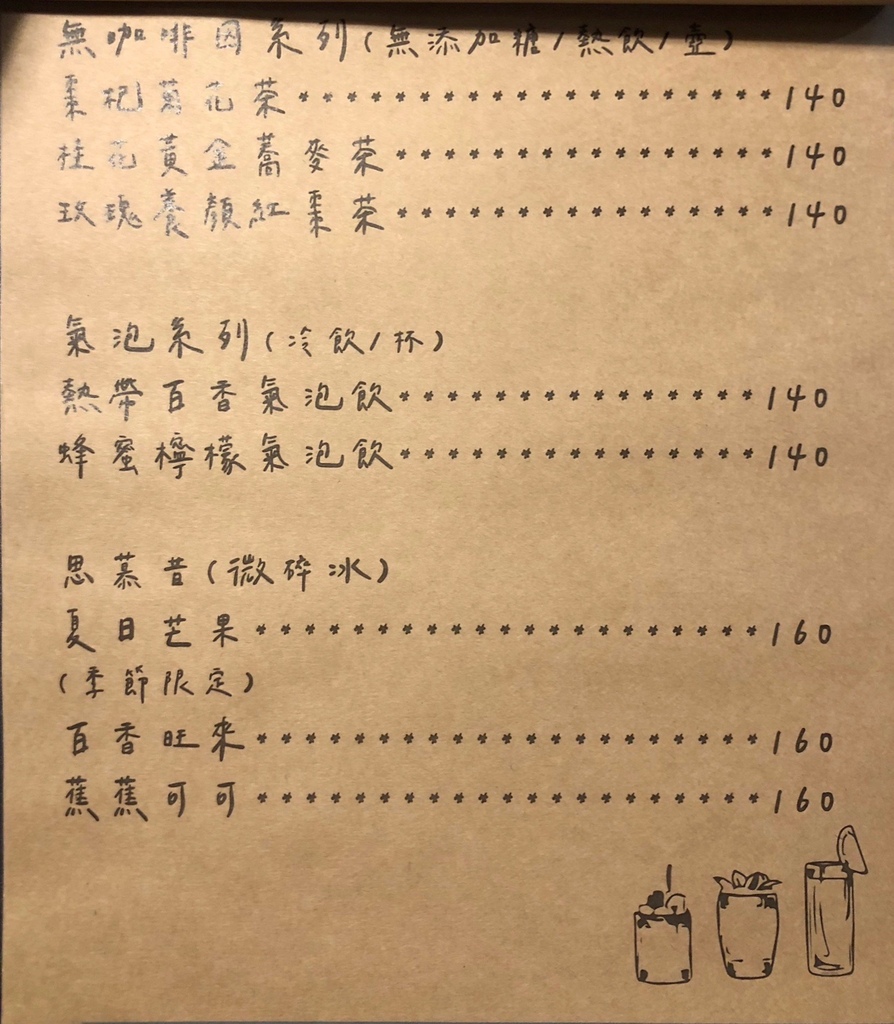 無咖啡因系列(無添加糖/熱飲/壺)
棗杞萬花茶******************** 140
桂花黃金蕎麥茶**************** 140
玫瑰養顏紅棗茶**************** 140
氣泡系列(冷飲/杯)
熱帶百香氣泡飲*************** 140
蜂蜜檸檬氣泡飲*************** 140
思慕昔(微碎冰)
夏日芒果********************* 160
(季節限定)
百香旺來********************* 160
蕉蕉可可********************* 160